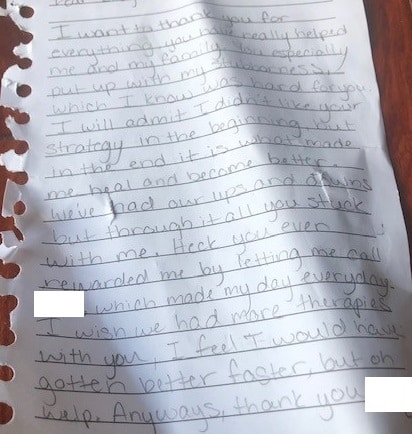 I want to thank you for
everything you have really helped
me and my family. You especially
put up with my stubborness,
which I know was hard for you.
I will admit I didn't like your
strategy in the beginning but
in the end it is what made
me heal and become better.
We've had our ups and downs
but through it all you stuck
with me. Heck you even
rewarded me by letting me call
, which made my day everyday.
I wish we had more therapies
with you, I feel I would have
gotten better faster, but oh
welp. Anyways, thank you